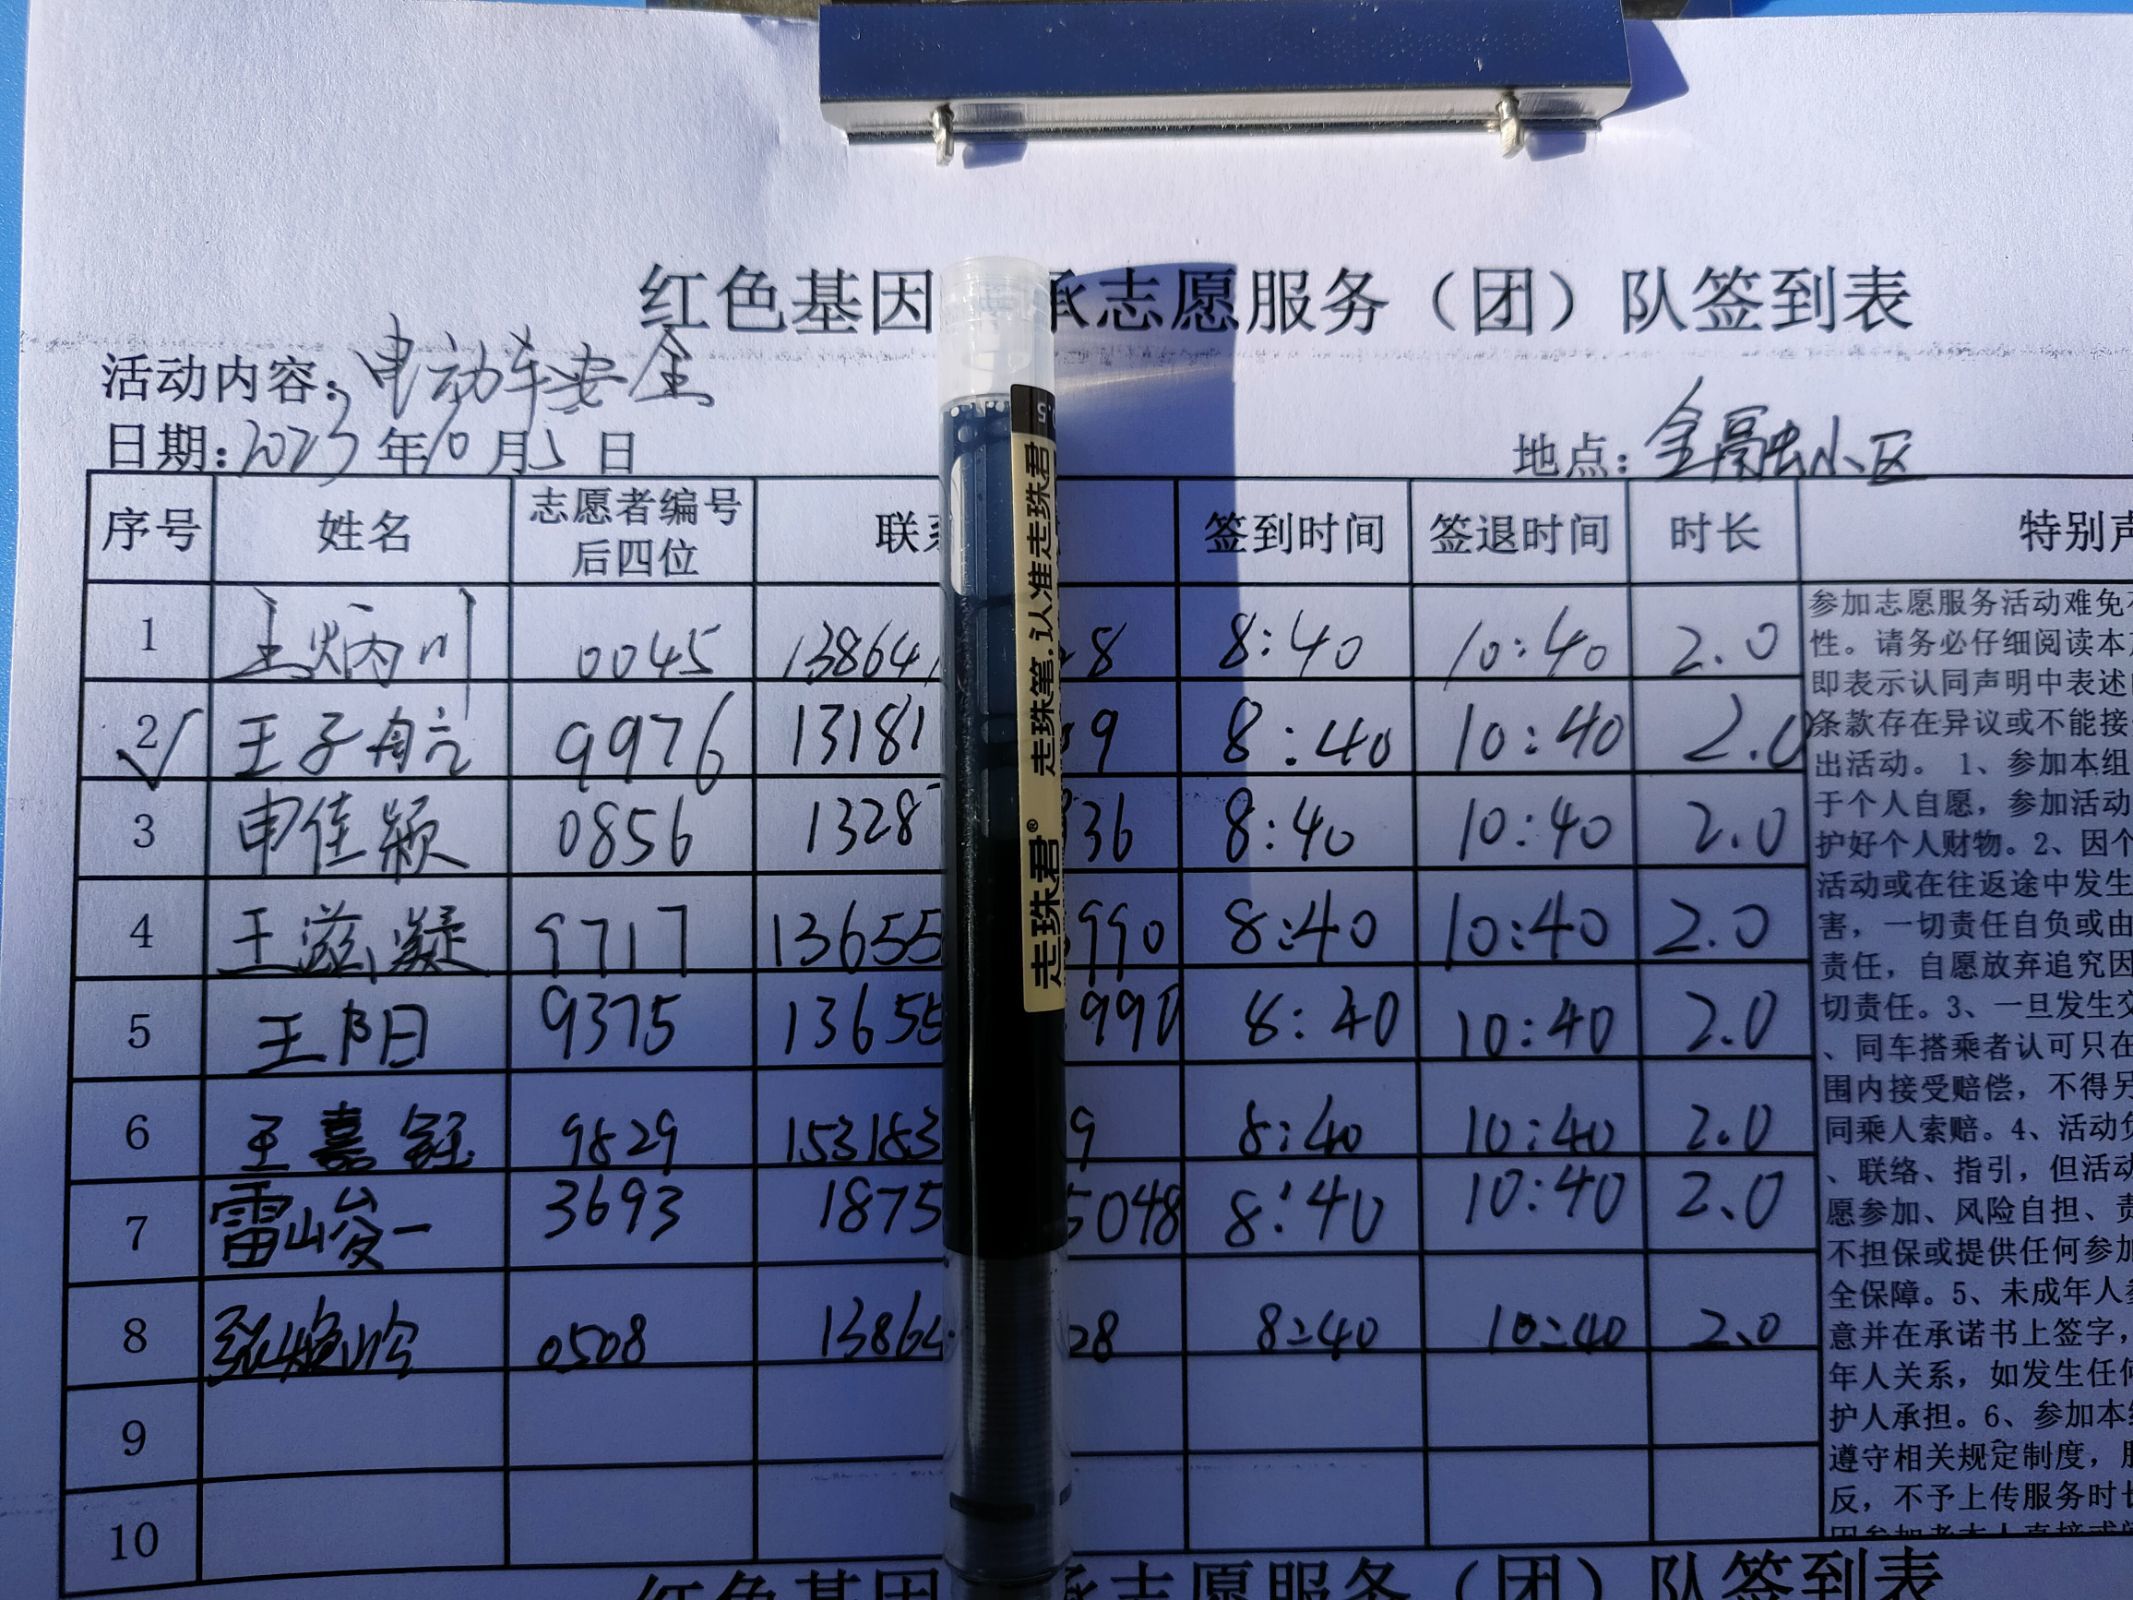 红色基因 承志愿服务（团）队签到表
活动内容：电动车安全
日期：2023年10月5日 地点：金融小区
序号 姓名 志愿者编号后四位 联系 签到时间 签退时间 时长 特别声
1 王炳川 0045 13864 8 8:40 10:40 2.0
2 王子航 9976 13181 9 8:40 10:40 2.0
3 申佳颖 0856 1328 36 8:40 10:40 2.0
4 王滋凝 9717 13655 990 8:40 10:40 2.0
5 王阳 9375 13655 990 8:40 10:40 2.0
6 王嘉钰 9829 153183 9 8:40 10:40 2.0
7 雷峻一 3693 1875 5048 8:40 10:40 2.0
8 张 0508 1386 28 8:40 10:40 2.0
9
10
参加志愿服务活动难免
性。请务必仔细阅读本
即表示认同声明中表述
条款存在异议或不能接
出活动。 1、参加本组
于个人自愿，参加活动
护好个人财物。2、因个
活动或在往返途中发生
害，一切责任自负或由
责任，自愿放弃追究因
切责任。3、一旦发生交
、同车搭乘者认可只在
围内接受赔偿，不得另
同乘人索赔。4、活动负
、联络、指引，但活动
愿参加、风险自担、责
不担保或提供任何参加
全保障。5、未成年人参
意并在承诺书上签字，
年人关系，如发生任何
护人承担。6、参加本组
遵守相关规定制度，服
反，不予上传服务时长
红色基因 承志愿服务（团）队签到表
走珠君® 走珠笔,认准走珠君